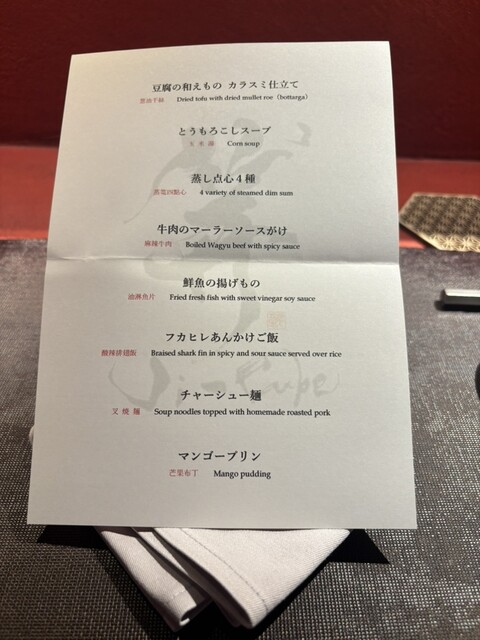 豆腐の和えもの カラスミ仕立て
Dried tofu with dried mullet roe (bottarga)
とうもろこしスープ
Corn soup
蒸し点心4種
蒸籠四點心 4 variety of steamed dim sum
牛肉のマーラーソースがけ
麻辣牛肉 Boiled Wagyu beef with spicy sauce
鮮魚の揚げもの
油淋魚片 Fried fresh fish with sweet vinegar soy sauce
フカヒレあんかけご飯
酸辣排翅飯 Braised shark fin in spicy and sour sauce served over rice
チャーシュー麺
叉 焼 麺 Soup noodles topped with homemade roasted pork
マンゴープリン
芒果布丁 Mango pudding